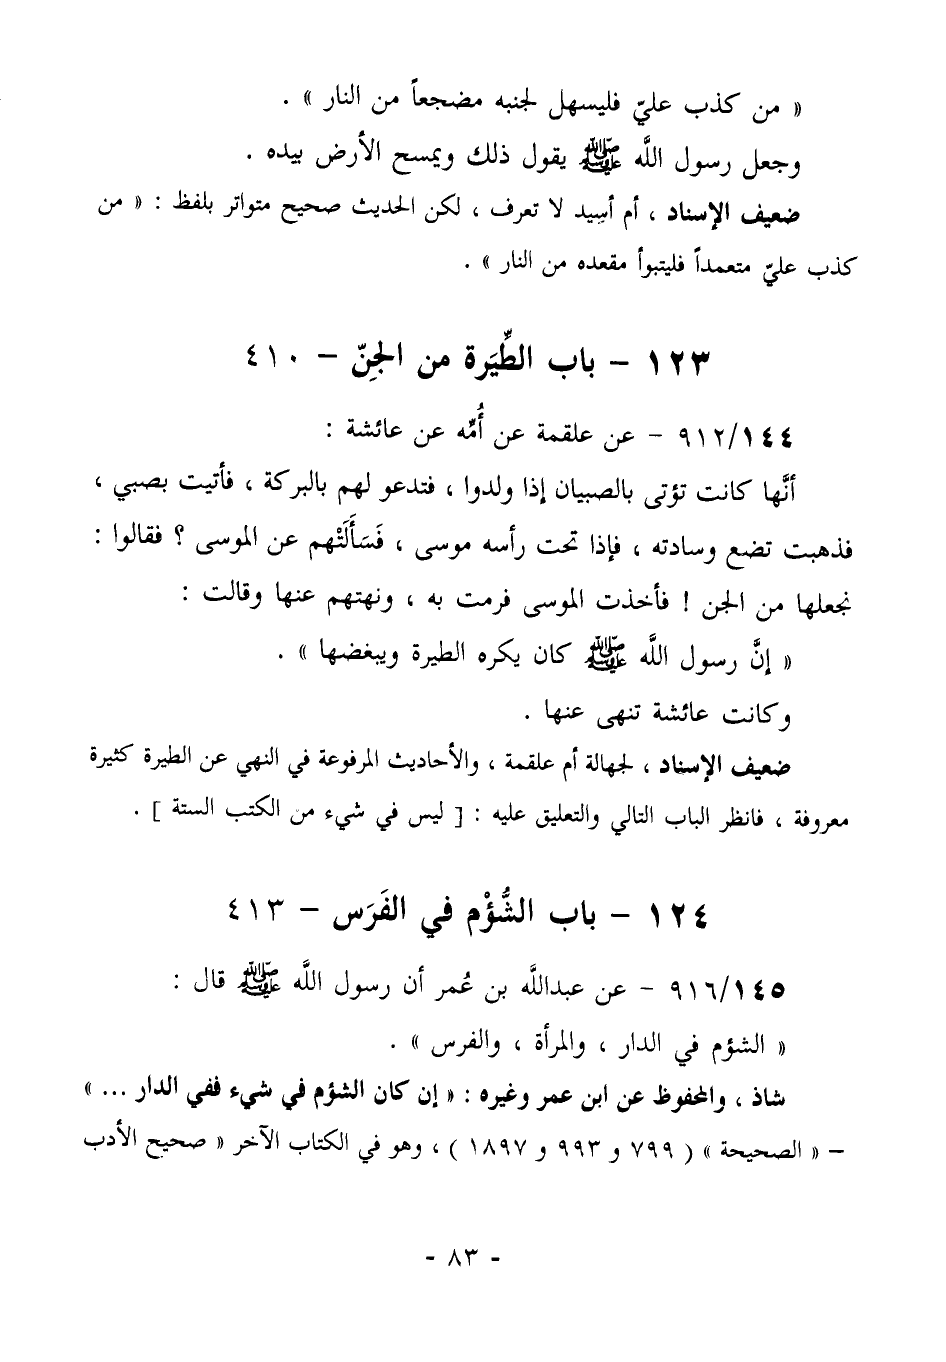 « من كذب عليّ فليسهل لجنبه مضجعاً من النار » .
وجعل رسول اللَّه ﷺ يقول ذلك ويمسح الأرض بيده .
ضعيف الإسناد ، أم أسِيد لا تعرف ، لكن الحديث صحيح متواتر بلفظ : « من
كذب عليّ متعمداً فليتبوأ مقعده من النار » .
١٢٣ - باب الطِّيَرة من الجِنّ - ٤١٠
٩١٢/١٤٤ - عن علقمة عن أُمِّه عن عائشة :
أنَّها كانت تؤتى بالصبيان إذا ولدوا ، فتدعو لهم بالبركة ، فأتيت بصبي ،
فذهبت تضع وسادته ، فإذا تحت رأسه موسى ، فَسَأَلَتْهم عن الموسى ؟ فقالوا :
نجعلها من الجن ! فأخذت الموسى فرمت به ، ونهتهم عنها وقالت :
« إنَّ رسول اللَّه ﷺ كان يكره الطيرة ويبغضها » .
وكانت عائشة تنهى عنها .
ضعيف الإسناد ، لجهالة أم علقمة ، والأحاديث المرفوعة في النهي عن الطيرة كثيرة
معروفة ، فانظر الباب التالي والتعليق عليه : [ ليس في شيء من الكتب الستة ] .
١٢٤ - باب الشُّؤْم في الفَرَس - ٤١٣
٩١٦/١٤٥ - عن عبداللَّه بن عُمر أن رسول اللَّه ﷺ قال :
« الشؤم في الدار ، والمرأة ، والفرس » .
شاذ ، والمحفوظ عن ابن عمر وغيره : « إن كان الشؤم في شيء ففي الدار ... »
- « الصحيحة » ( ٧٩٩ و ٩٩٣ و ١٨٩٧ ) ، وهو في الكتاب الآخر « صحيح الأدب
- ٨٣ -